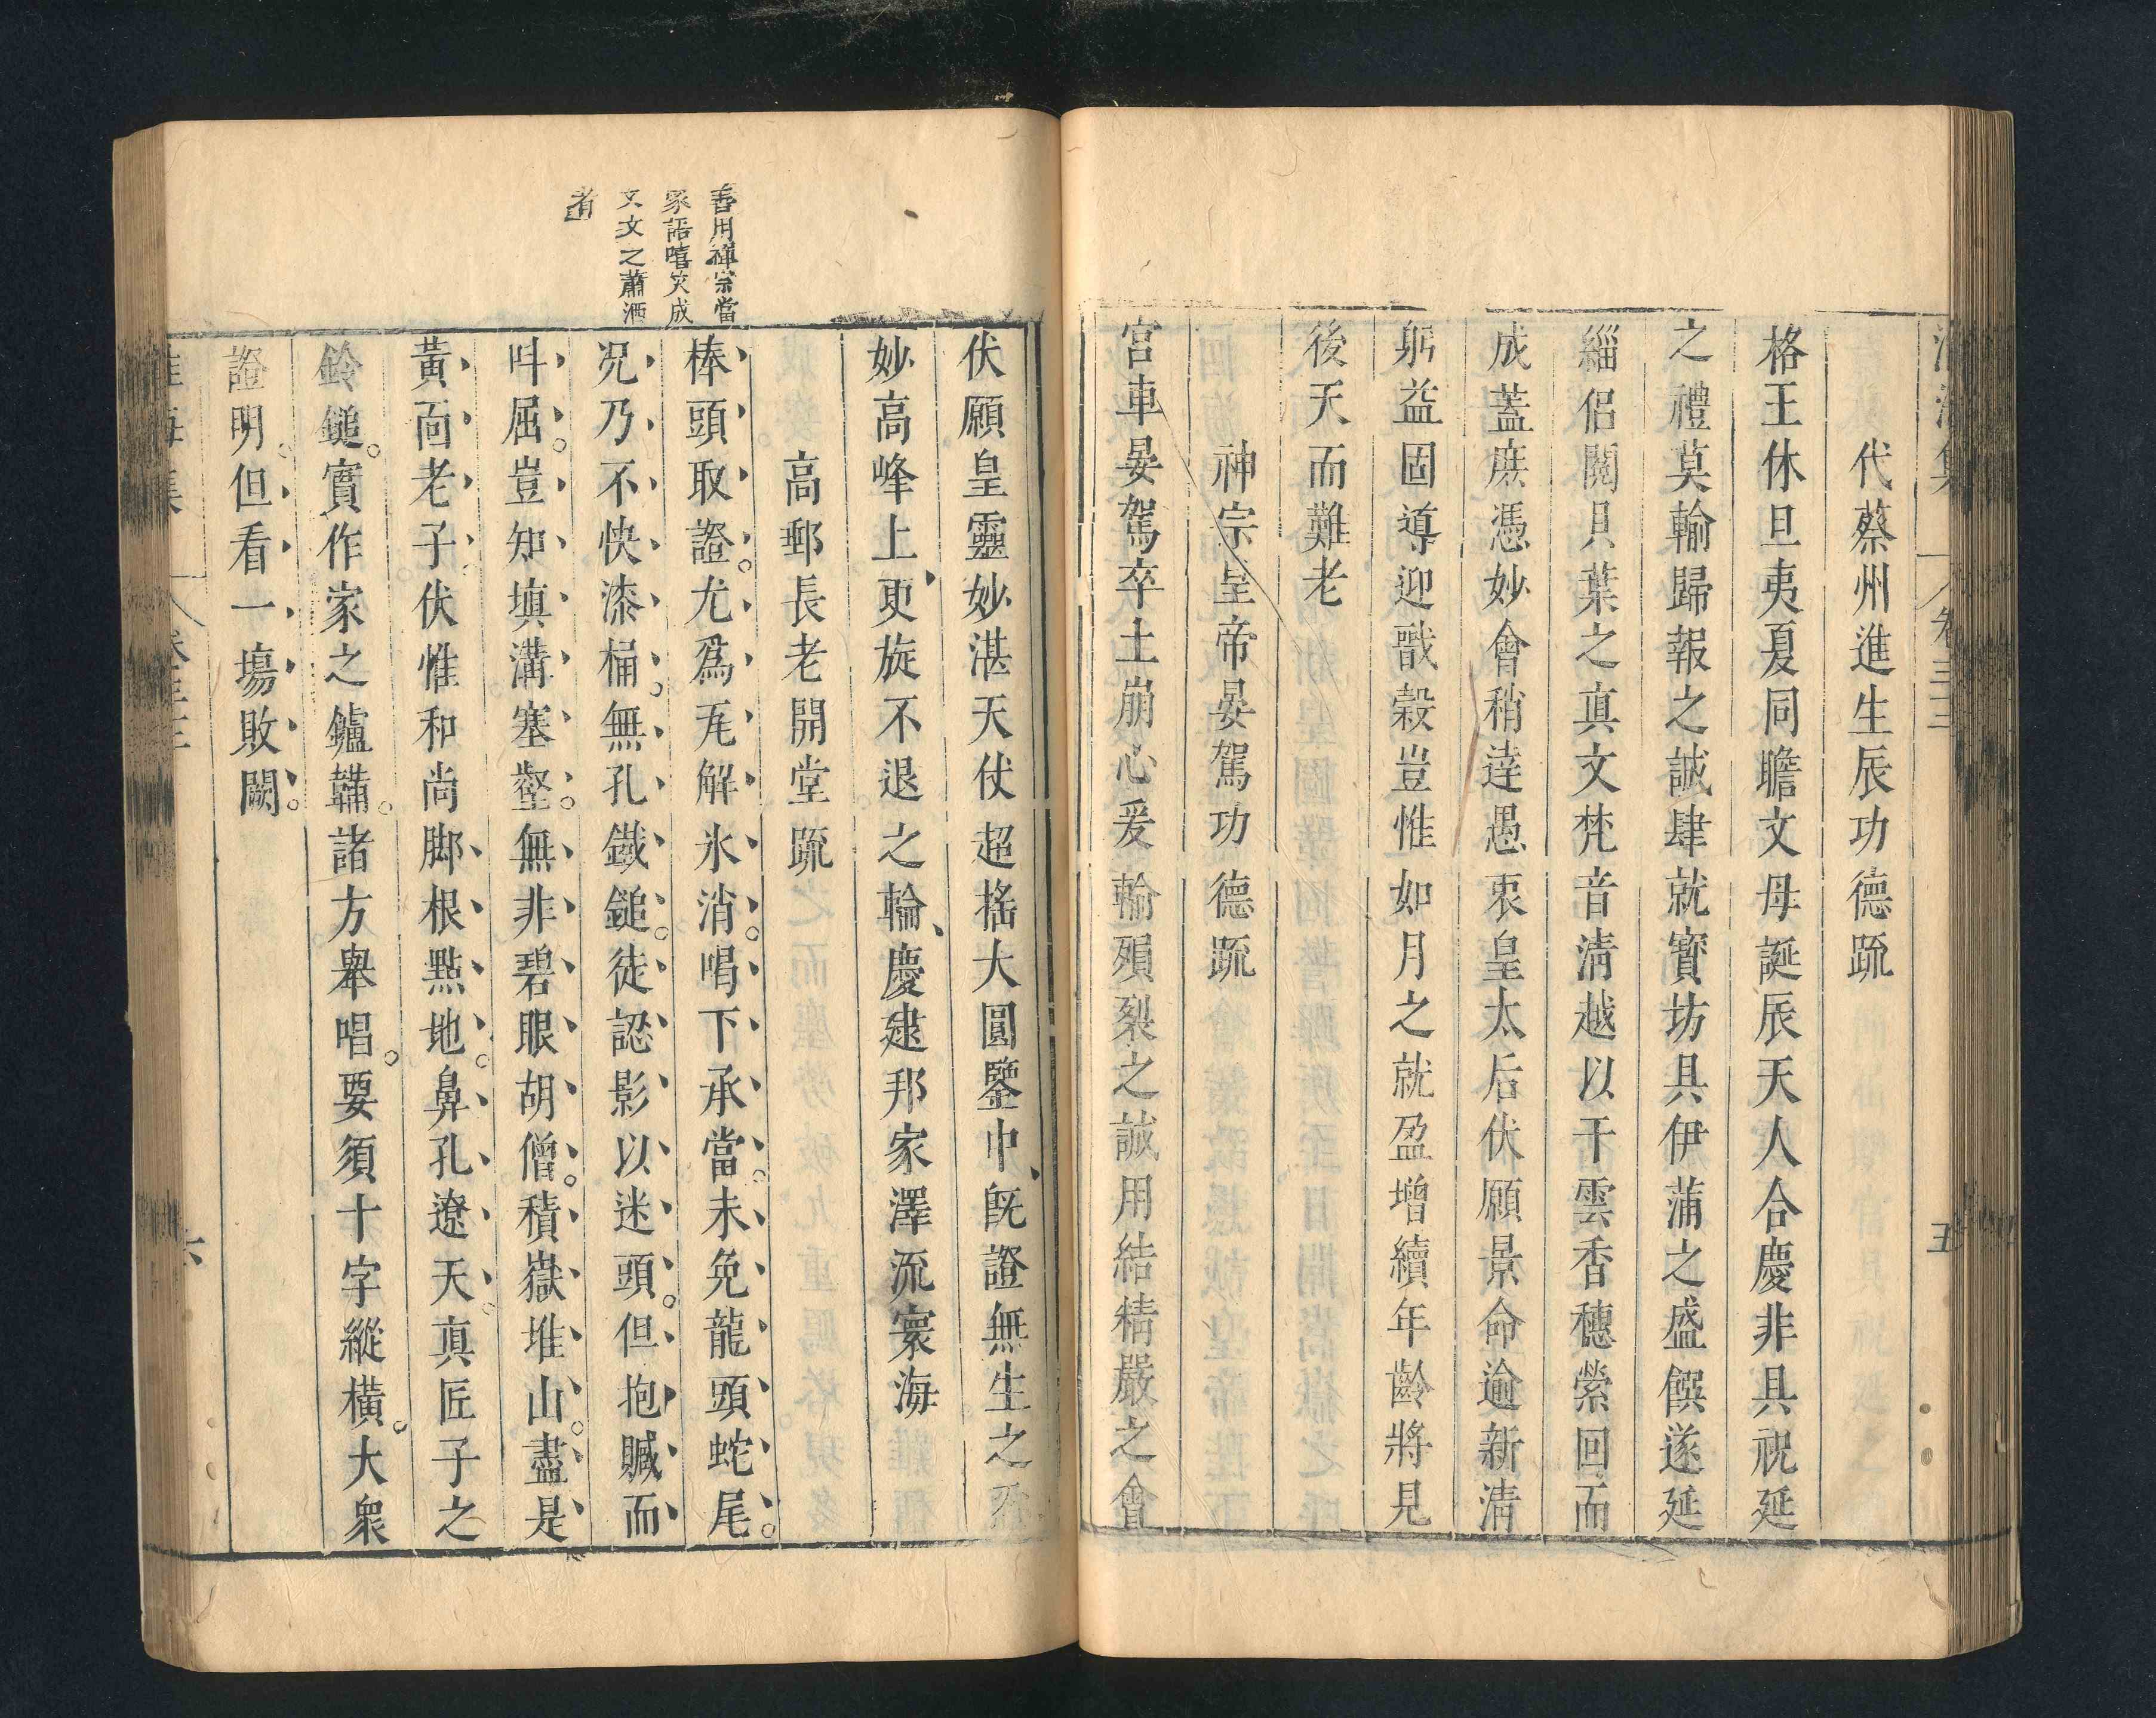 代蔡州進生辰功德疏
格王休旦夷夏同瞻文母誕辰天人合慶非具祝延
之禮莫輸歸報之誠肆就寶坊具伊蒲之盛饌遂延
緇侶閱貝葉之真文梵音清越以干雲香穗縈回而
成蓋庶憑妙會稍達愚衷皇太后伏願景命逾新清
躬益固導迎戩穀豈惟如月之就盈增續年齡將見
後天而難老
神宗皇帝晏駕功德疏
宮車晏駕率土崩心爰輸殞裂之誠用結精嚴之會
伏願皇靈妙湛天仗超搖大圓鑒中既證無生之忍
妙高峰上更旋不退之輪慶建邦家澤流寰海
高郵長老開堂疏
善用禪宗當
家語嘻笑成
文文之蕭洒
者
棒頭取證。尤為瓦解氷消。喝下承當。未免龍頭蛇尾。
况乃不快漆桶。無孔鐵鎚。徒認影以迷頭。但抱贓而
呌屈。豈知塡溝塞壑。無非碧眼胡僧。積嶽堆山。盡是
黃面老子伏惟和尚脚根點地。鼻孔遼天。真匠子之
鈴鎚。實作家之鑪鞴。諸方舉唱。要須十字縱橫。大衆
證明。但看一場敗闕。